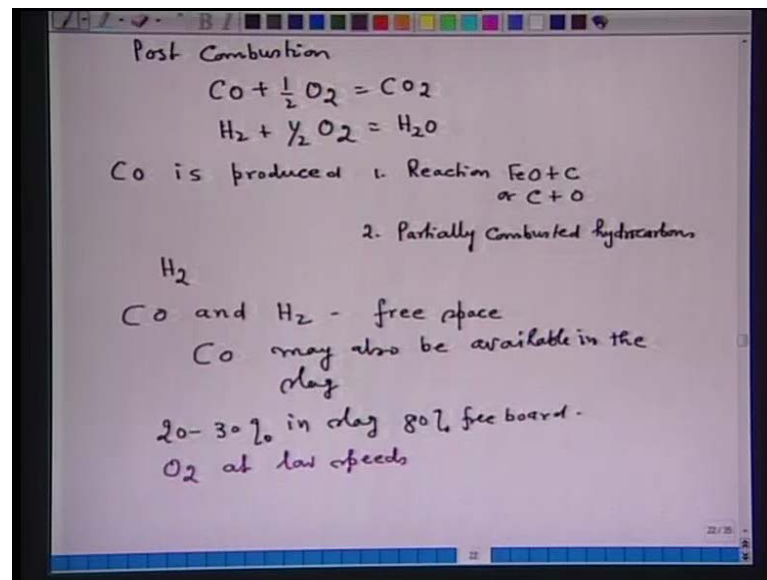 B I
Post Combustion
Co + 1/2 O2 = CO2
H2 + 1/2 O2 = H2O
Co is produced 1. Reaction FeO + C
or C + O
2. Partially Combusted hydrocarbons
H2
Co and H2 - free space
Co may also be available in the
slag
20-30% in slag 80% free board.
O2 at low speeds
22/25
22